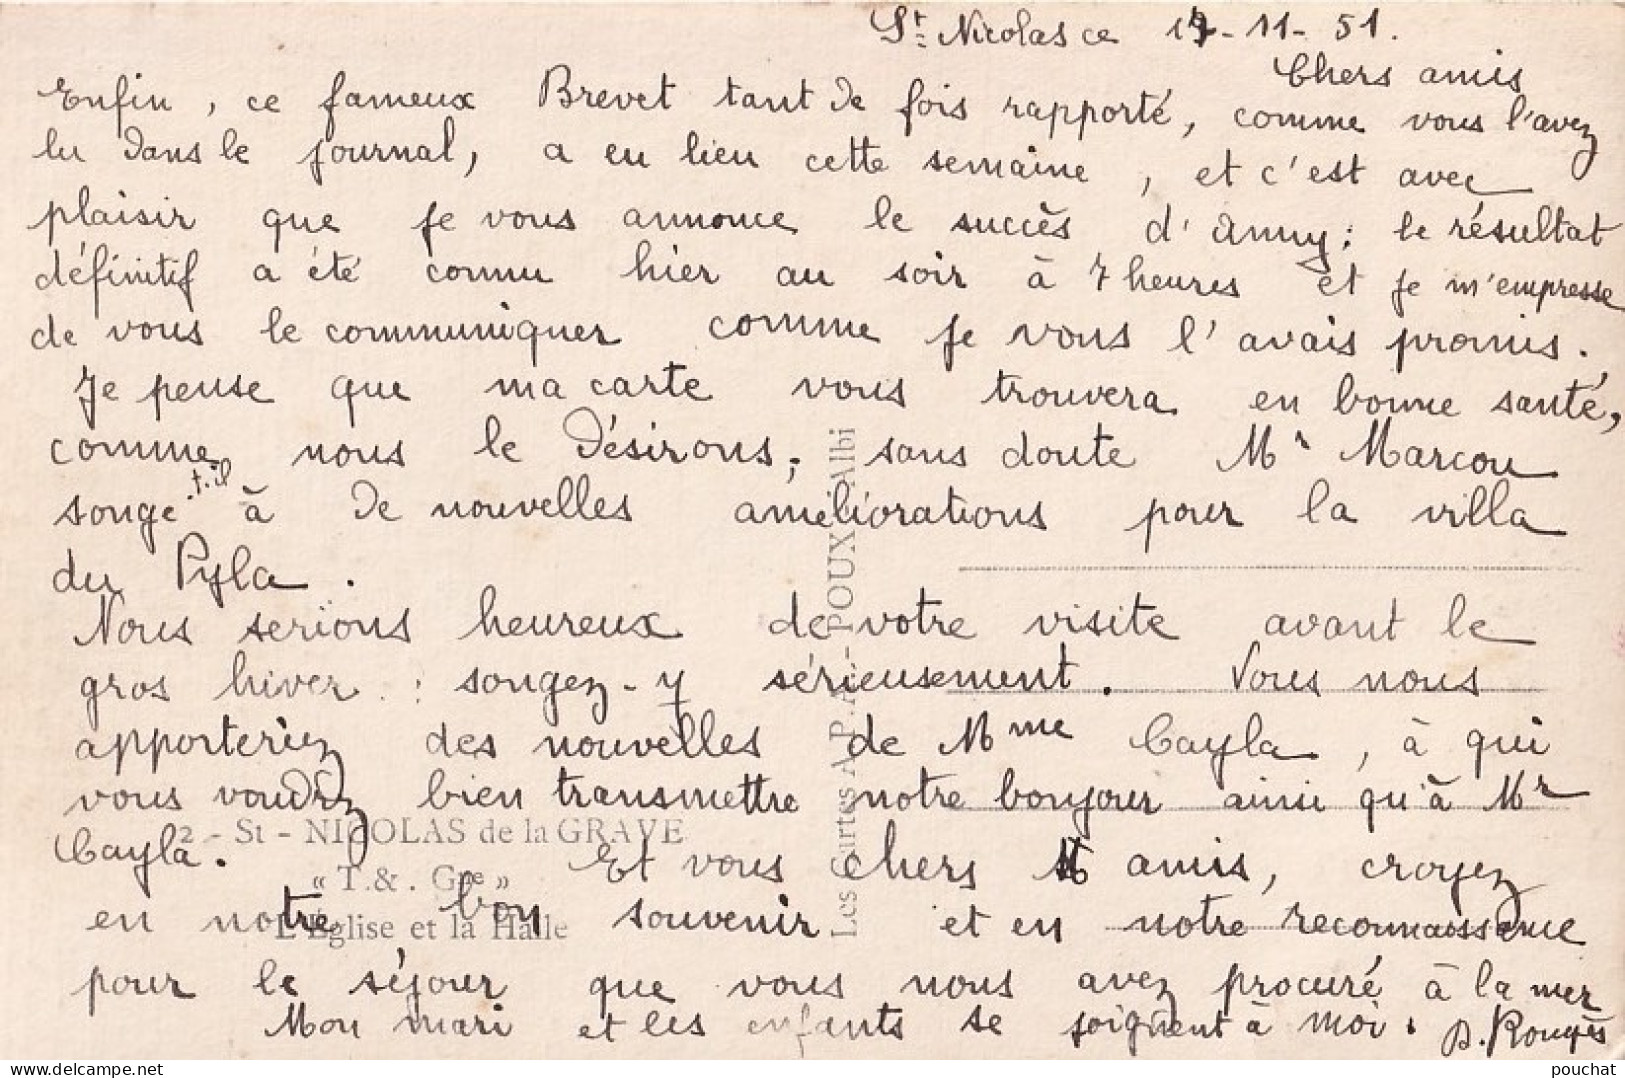 St Nicolas ce 17-11-51.
Chers amis
Enfin, ce fameux Brevet tant de fois rapporté, comme vous l'avez
lu dans le journal, a eu lieu cette semaine, et c'est avec
plaisir que je vous annonce le succès d'Anny; le résultat
définitif a été connu hier au soir à 7 heures et je m'empresse
de vous le communiquer comme je vous l'avais promis.
Je pense que ma carte vous trouvera en bonne santé,
comme nous le désirons; sans doute Mr Marcou
songe-t-il à de nouvelles améliorations pour la villa
du Pyla.
Nous serions heureux de votre visite avant le
gros hiver : songez-y sérieusement. Vous nous
apporteriez des nouvelles de Mme Cayla, à qui
vous voudrez bien transmettre notre bonjour ainsi qu'à Mr
Cayla. Et vous chers amis, croyez
en notre bon souvenir et en notre reconnaissance
pour le séjour que vous nous avez procuré à la mer
Mon mari et les enfants se joignent à moi. D. Rougès
2 - St - NICOLAS de la GRAVE
« T. & . Gne »
L'Église et la Halle
Les Cartes A.P.A. - POUX Albi
pouchat